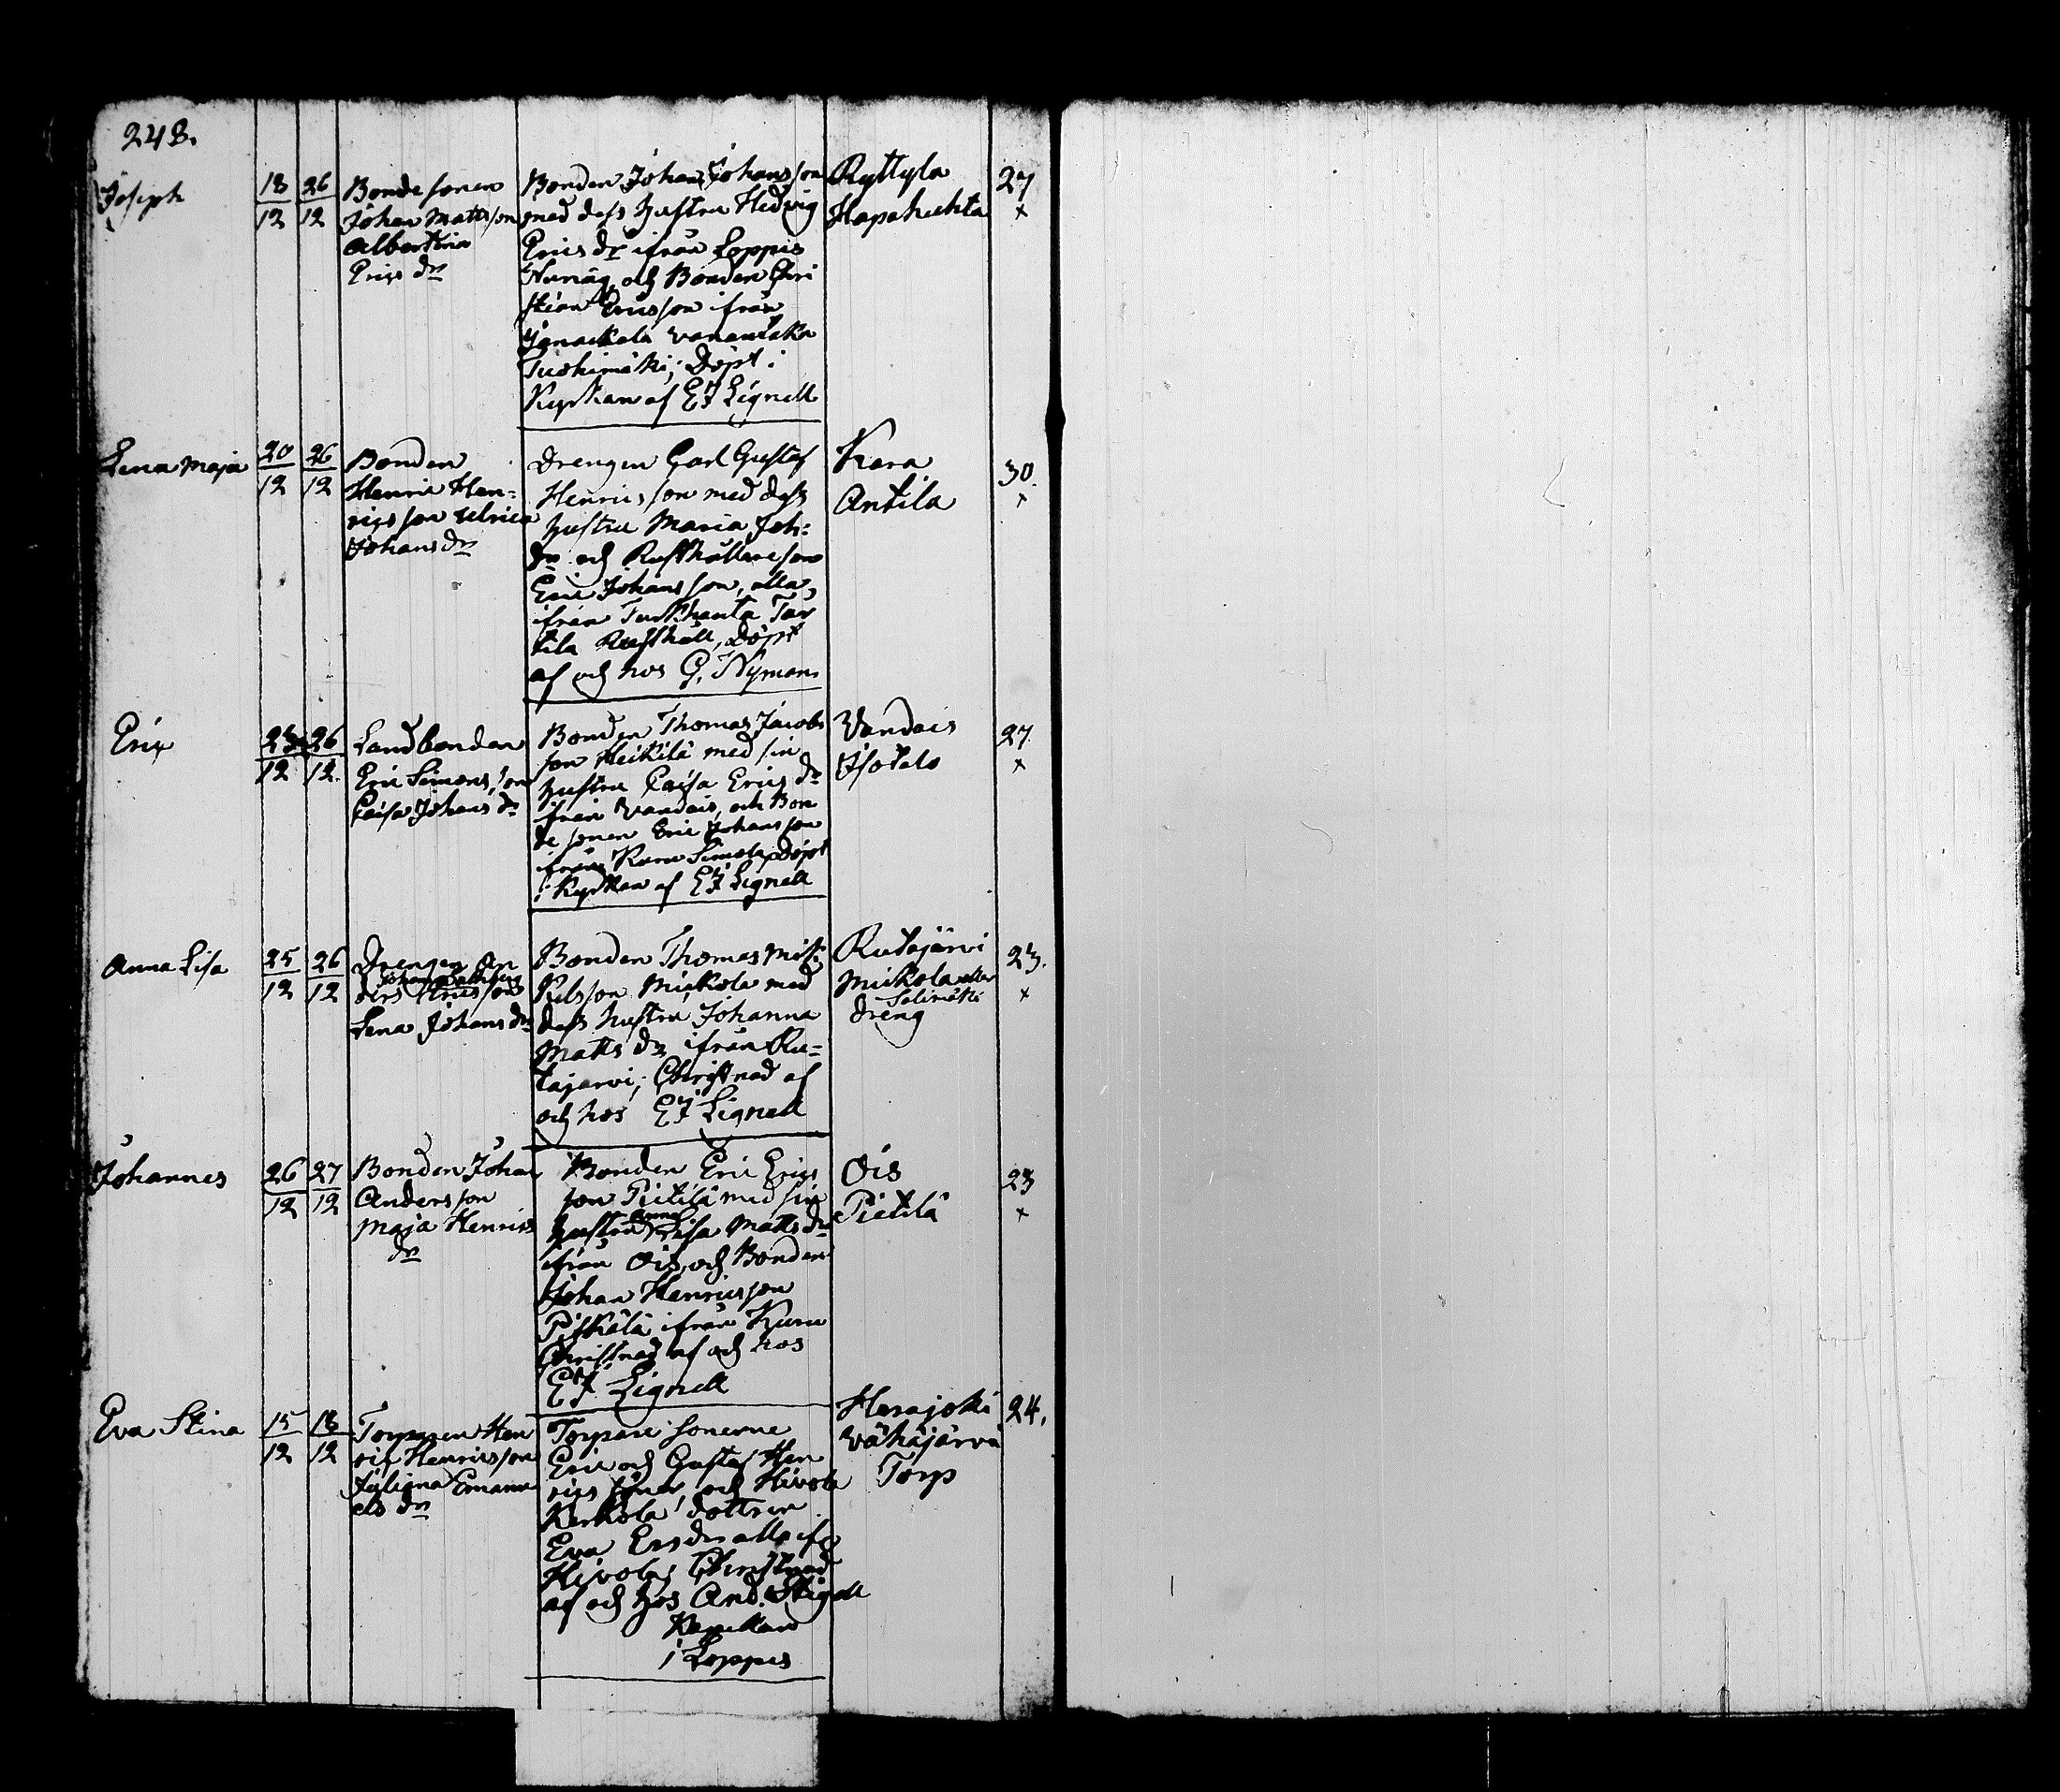 248.
Joseph
18 26
12 12
Bondesonen
Johan Mattsson
Albertina
Erics dr
Bonden Johan Johansson
med dess hustru Hedvig
Erics dr ifrån Loppis
och Bonden Chri
stian Ericsson ifrån
Janackala Vanantaka
Tuohimäki; Döpt i
Kyrkan af EJ Lignell
Ryttyla
Hapahuhta
27
x
Lena Maja
20 26
12 12
Bonden
Henric Hen-
ricsson Ulrica
Johans dr
Drengen Carl Gustaf
Henricsson med dess
hustru Maria Joh:
dr och Rusthållare son
Eric Johansson, alla
ifrån Turkhauta Tar
tila Rusthåll, Döpt
af och hos G. Nyman
Kara
Antila
30.
x
Eric
26
12 12.
Landbonden
Eric Simonsson
Caisa Johans dr
Bonden Thomas Jacobs
son Heikilä med sin
hustru Caisa Erics dr
ifrån Vandais, och Bon
de sonen Eric Johansson
ifrån Kuru Simola, Döpt
i Kyrkan af EJ Lignell
Vandais
Isotalo
27
x
Anna Lisa
25 26
12 12
Drengen An
ders Ericsson
Lena Johans dr
Bonden Thomas Mik:
kelsson Mickola med
dess hustru Johanna
Matts dr ifrån Ru-
tajarvi; Christnad af
och hos EJ Lignell
Rutajärvi
Mickola eller
Salimäki
dreng
23.
x
Johannes
26 27
12 12
Bonden Johan
Andersson
Maja Henrics
dr
Bonden Eric Erics
son Pietilä med sin
hustru Anna Lisa Matts dr
ifrån Ois, och Bonden
Johan Henricsson
Piskälä ifrån Kuru
Christnad af och hos
EJ Lignell
Ois
Pietilä
23
x
Eva Stina
15 18
12 12
Torparen Hen
ric Henricsson
Juliana Emanu
els dr
Torpare sönerne
Eric och Gustaf Hen
rics söner, och Hivola
Kerkola dottren
Eva Ersdr alla ifr
Hivola; Christnad
af och hos And. Stigell
Kapellan
i Loppis
Herajoki
Vähäjärvi
Torp
24.